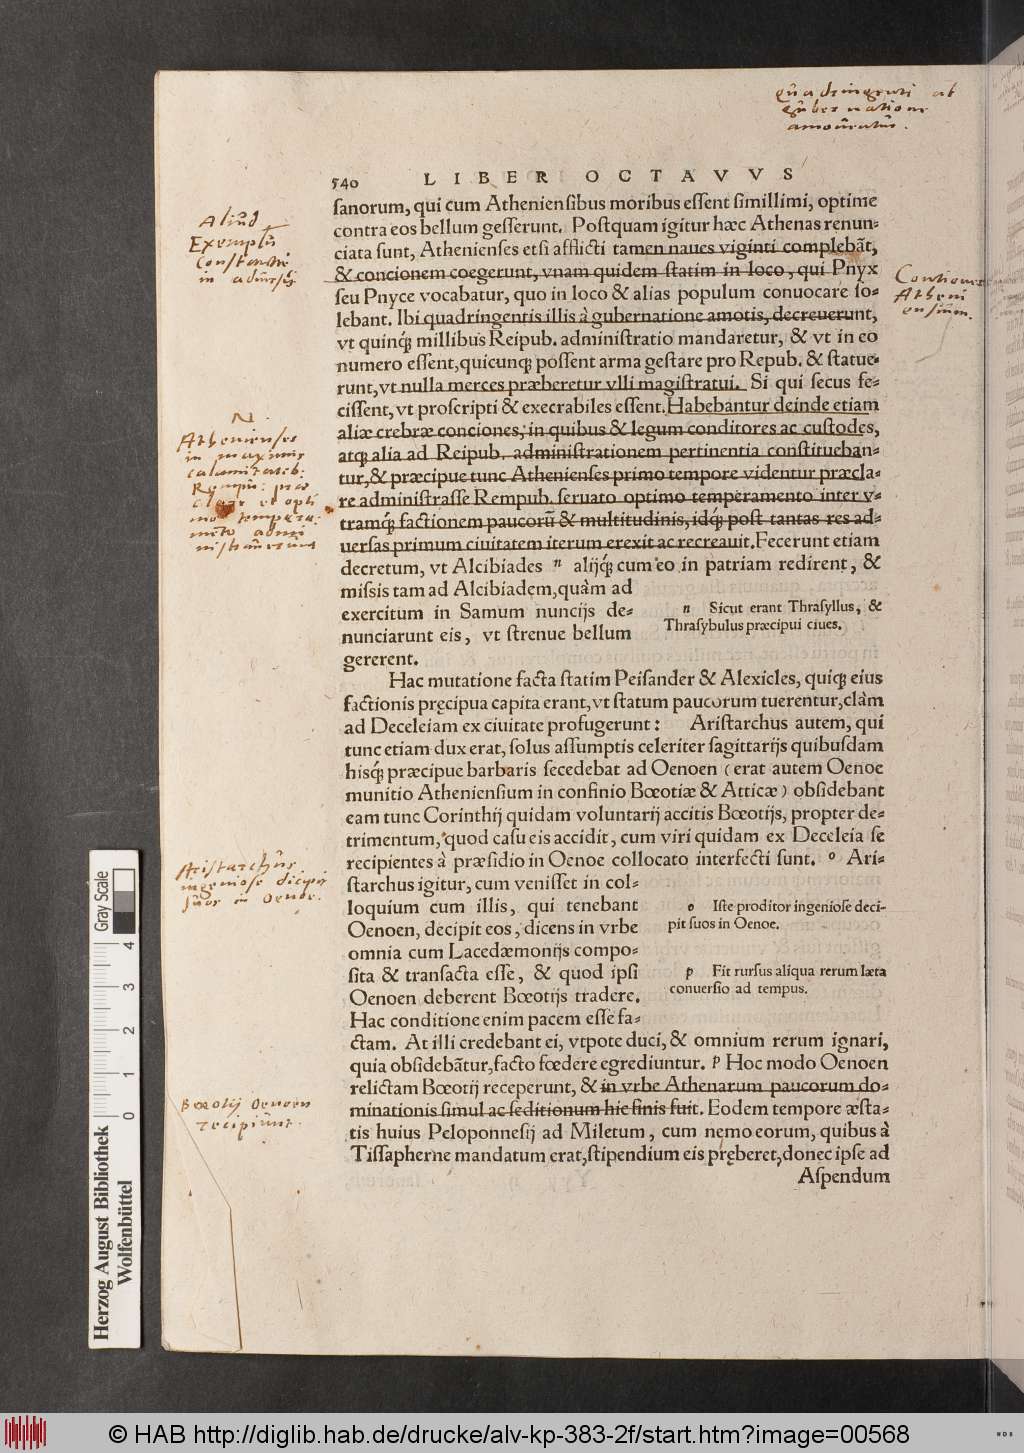 Quadringenti ab
gubernatione
amouentur.
540 LIBER OCTAVVS
sanorum, qui cum Atheniensibus moribus essent simillimi, optime
contra eos bellum gesserunt. Postquam igitur hæc Athenas renun-
ciata sunt, Athenienses etsi afflicti tamen naues viginti complebāt,
& concionem coegerunt, vnam quidem statim in loco, qui Pnyx
seu Pnyce vocabatur, quo in loco & alias populum conuocare so-
lebant. Ibi quadringentis illis à gubernatione amotis, decreuerunt,
vt quinq; millibus Reipub. administratio mandaretur, & vt in eo
numero essent, quicunq; possent arma gestare pro Repub. & statue-
runt, vt nulla merces præberetur vlli magistratui. Si qui secus fe-
cissent, vt proscripti & execrabiles essent. Habebantur deinde etiam
aliæ crebræ conciones, in quibus & legum conditores ac custodes,
atq; alia ad Reipub. administrationem pertinentia constitueban-
tur, & præcipue tunc Athenienses primo tempore videntur præcla-
re administrasse Rempub. seruato optimo temperamento inter v-
tramq; factionem paucorū & multitudinis, idq; post tantas res ad-
uersas primum ciuitatem iterum erexit ac recreauit. Fecerunt etiam
decretum, vt Alcibiades n alijq; cum eo in patriam redirent, &
missis tam ad Alcibiadem, quàm ad
exercitum in Samum nuncijs de-
nunciarunt eis, vt strenue bellum
gererent.
n Sicut erant Thrasyllus, &
Thrasybulus præcipui ciues.
Hac mutatione facta statim Peisander & Alexicles, quiq; eius
factionis pręcipua capita erant, vt statum paucorum tuerentur, clàm
ad Deceleiam ex ciuitate profugerunt: Aristarchus autem, qui
tunc etiam dux erat, solus assumptis celeriter sagittarijs quibusdam
hisq; præcipue barbaris secedebat ad Oenoen (erat autem Oenoe
munitio Atheniensium in confinio Bœotiæ & Atticæ) obsidebant
eam tunc Corinthij quidam voluntarij accitis Bœotijs, propter de-
trimentum, quod casu eis accidit, cum viri quidam ex Deceleia se
recipientes à præsidio in Oenoe collocato interfecti sunt. o Ari-
starchus igitur, cum venisset in col-
loquium cum illis, qui tenebant
Oenoen, decipit eos, dicens in vrbe
omnia cum Lacedæmonijs compo-
sita & transacta esse, & quod ipsi
Oenoen deberent Bœotijs tradere.
Hac conditione enim pacem esse fa-
o Iste proditor ingeniose deci-
pit suos in Oenoe.
p Fit rursus aliqua rerum læta
conuersio ad tempus.
ctam. At illi credebant ei, vtpote duci, & omnium rerum ignari,
quia obsidebātur, facto fœdere egrediuntur. p Hoc modo Oenoen
relictam Bœotij receperunt, & in vrbe Athenarum paucorum do-
minationis simul ac seditionum hic finis fuit. Eodem tempore æsta-
tis huius Peloponnesij ad Miletum, cum nemo eorum, quibus à
Tissapherne mandatum erat, stipendium eis pręberet, donec ipse ad
Aspendum
Aliud
Exemplū
Constantiæ
in aduersis
Contiones
Atheni
ensium.
N.
Athenienses
in maximis
calamitatib:
Rempu: præ
clare et opti
mo tempera:
mēto admi
nistrauerunt
Aristarchus
ingeniose decipit
suos in Oenoe.
Bœotij Oenoen
recipiunt.
Gray Scale
0 1 2 3 4
Herzog August Bibliothek
Wolfenbüttel
© HAB http://diglib.hab.de/drucke/alv-kp-383-2f/start.htm?image=00568